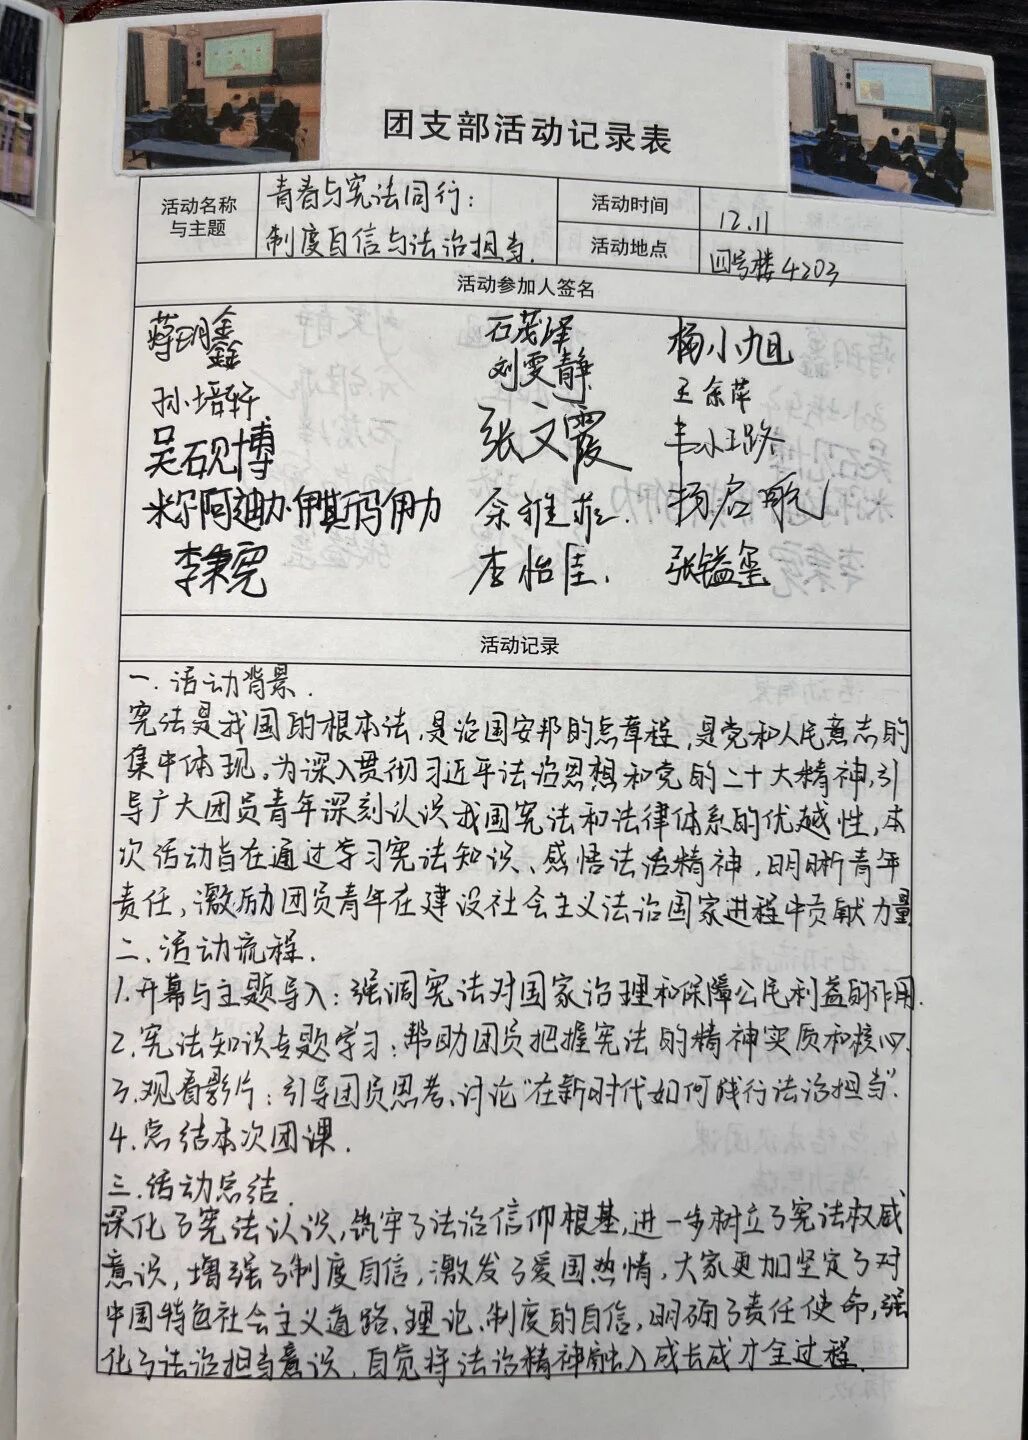 团支部活动记录表
活动名称
与主题
青春与宪法同行:
制度自信与法治担当.
活动时间
12.11
活动地点
四号楼4203
活动参加人签名
蒋玥鑫
石茂泽
杨小旭
孙培轩
刘雯静
王余萍
吴砚博
张文霞
韦小璐
米尔阿迪力·伊斯玛伊力
余雅菲.
杨启航
李秉霓
李怡佳.
张镒玺
活动记录
一.活动背景.
宪法是我国的根本法,是治国安邦的总章程,是党和人民意志的
集中体现。为深入贯彻习近平法治思想和党的二十大精神,引
导广大团员青年深刻认识我国宪法和法律体系的优越性,本
次活动旨在通过学习宪法知识、感悟法治精神,明晰青年
责任,激励团员青年在建设社会主义法治国家进程中贡献力量
二.活动流程.
1.开幕与主题导入:强调宪法对国家治理和保障公民利益的作用.
2.宪法知识专题学习:帮助团员把握宪法的精神实质和核心.
3.观看影片:引导团员思考、讨论“在新时代如何践行法治担当”.
4.总结本次团课.
三.活动总结.
深化了宪法认识,筑牢了法治信仰根基,进一步树立了宪法权威
意识,增强了制度自信,激发了爱国热情,大家更加坚定了对
中国特色社会主义道路、理论、制度的自信,明确了责任使命,强
化了法治担当意识,自觉将法治精神融入成长成才全过程.